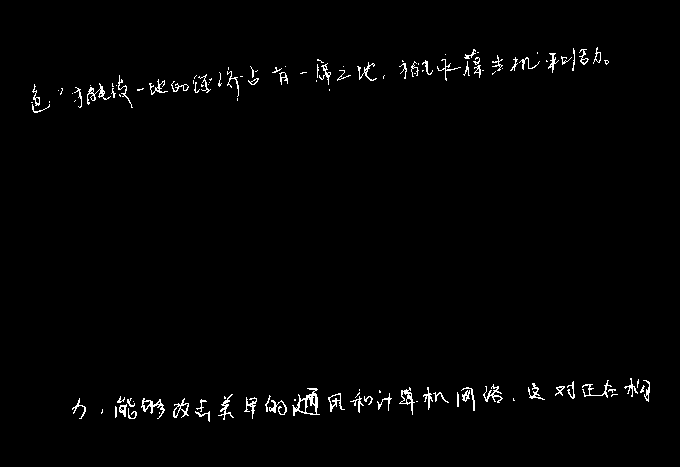 色，才能使一地的经济占有一席之地，才能永葆生机和活力。
力，能够攻击美军的通风和计算机网络，这对正在构